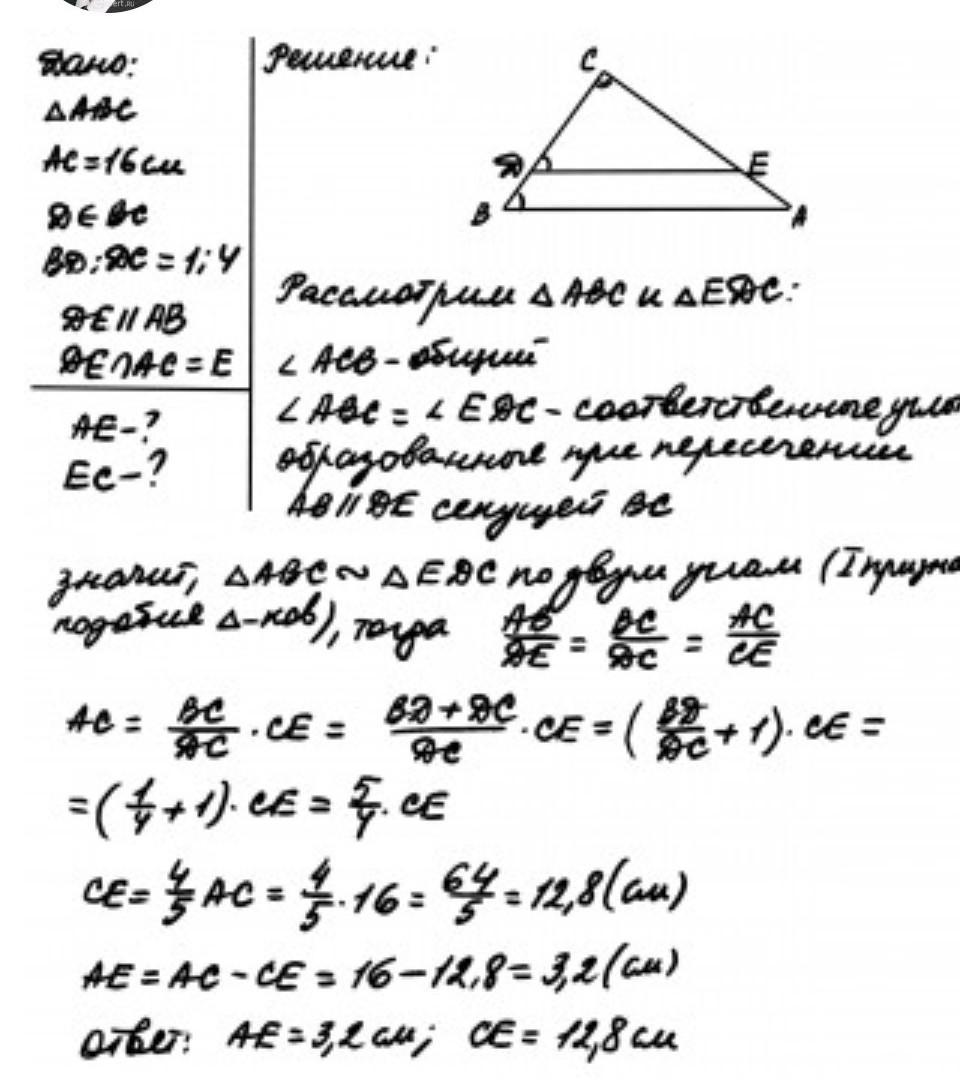 ert.ru
Дано:
△ABC
AC=16см
D∈BC
BD:DC=1:4
DE∥AB
DE∩AC=E
AE-?
EC-?
Решение:
C
D
E
B
A
Рассмотрим △ABC и △EDC:
∠ACB-общий
∠ABC=∠EDC-соответственные
образованные при пересечении
AB∥DE секущей BC
значит, △ABC∼△EDC по двум углам (I
подобия △-ков), тогда AB/DE = BC/DC = AC/CE
AC = BC/DC · CE = (BD+DC)/DC · CE = (BD/DC + 1) · CE =
=(1/4 + 1) · CE = 5/4 · CE
CE = 4/5 AC = 4/5 · 16 = 64/5 = 12,8(см)
AE = AC - CE = 16 - 12,8 = 3,2(см)
Ответ: AE=3,2см; CE=12,8см